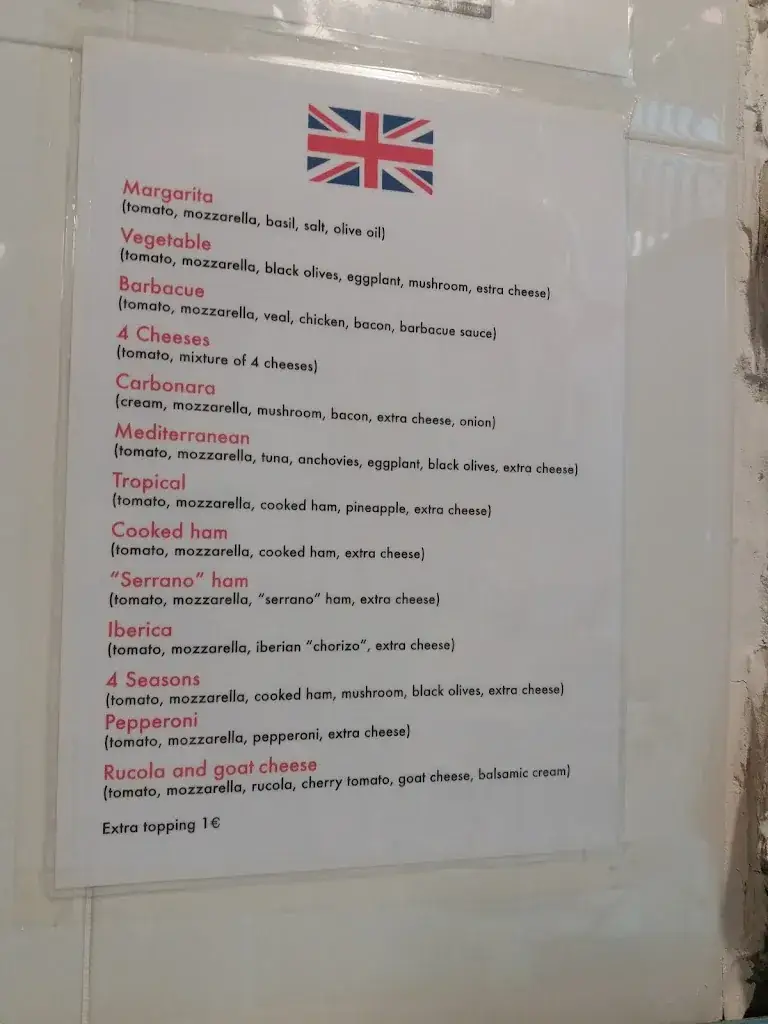 Margarita
(tomato, mozzarella, basil, salt, olive oil)
Vegetable
(tomato, mozzarella, black olives, eggplant, mushroom, estra cheese)
Barbacue
(tomato, mozzarella, veal, chicken, bacon, barbacue sauce)
4 Cheeses
(tomato, mixture of 4 cheeses)
Carbonara
(cream, mozzarella, mushroom, bacon, extra cheese, onion)
Mediterranean
(tomato, mozzarella, tuna, anchovies, eggplant, black olives, extra cheese)
Tropical
(tomato, mozzarella, cooked ham, pineapple, extra cheese)
Cooked ham
(tomato, mozzarella, cooked ham, extra cheese)
“Serrano” ham
(tomato, mozzarella, “serrano” ham, extra cheese)
Iberica
(tomato, mozzarella, iberian “chorizo”, extra cheese)
4 Seasons
(tomato, mozzarella, cooked ham, mushroom, black olives, extra cheese)
Pepperoni
(tomato, mozzarella, pepperoni, extra cheese)
Rucola and goat cheese
(tomato, mozzarella, rucola, cherry tomato, goat cheese, balsamic cream)
Extra topping 1€